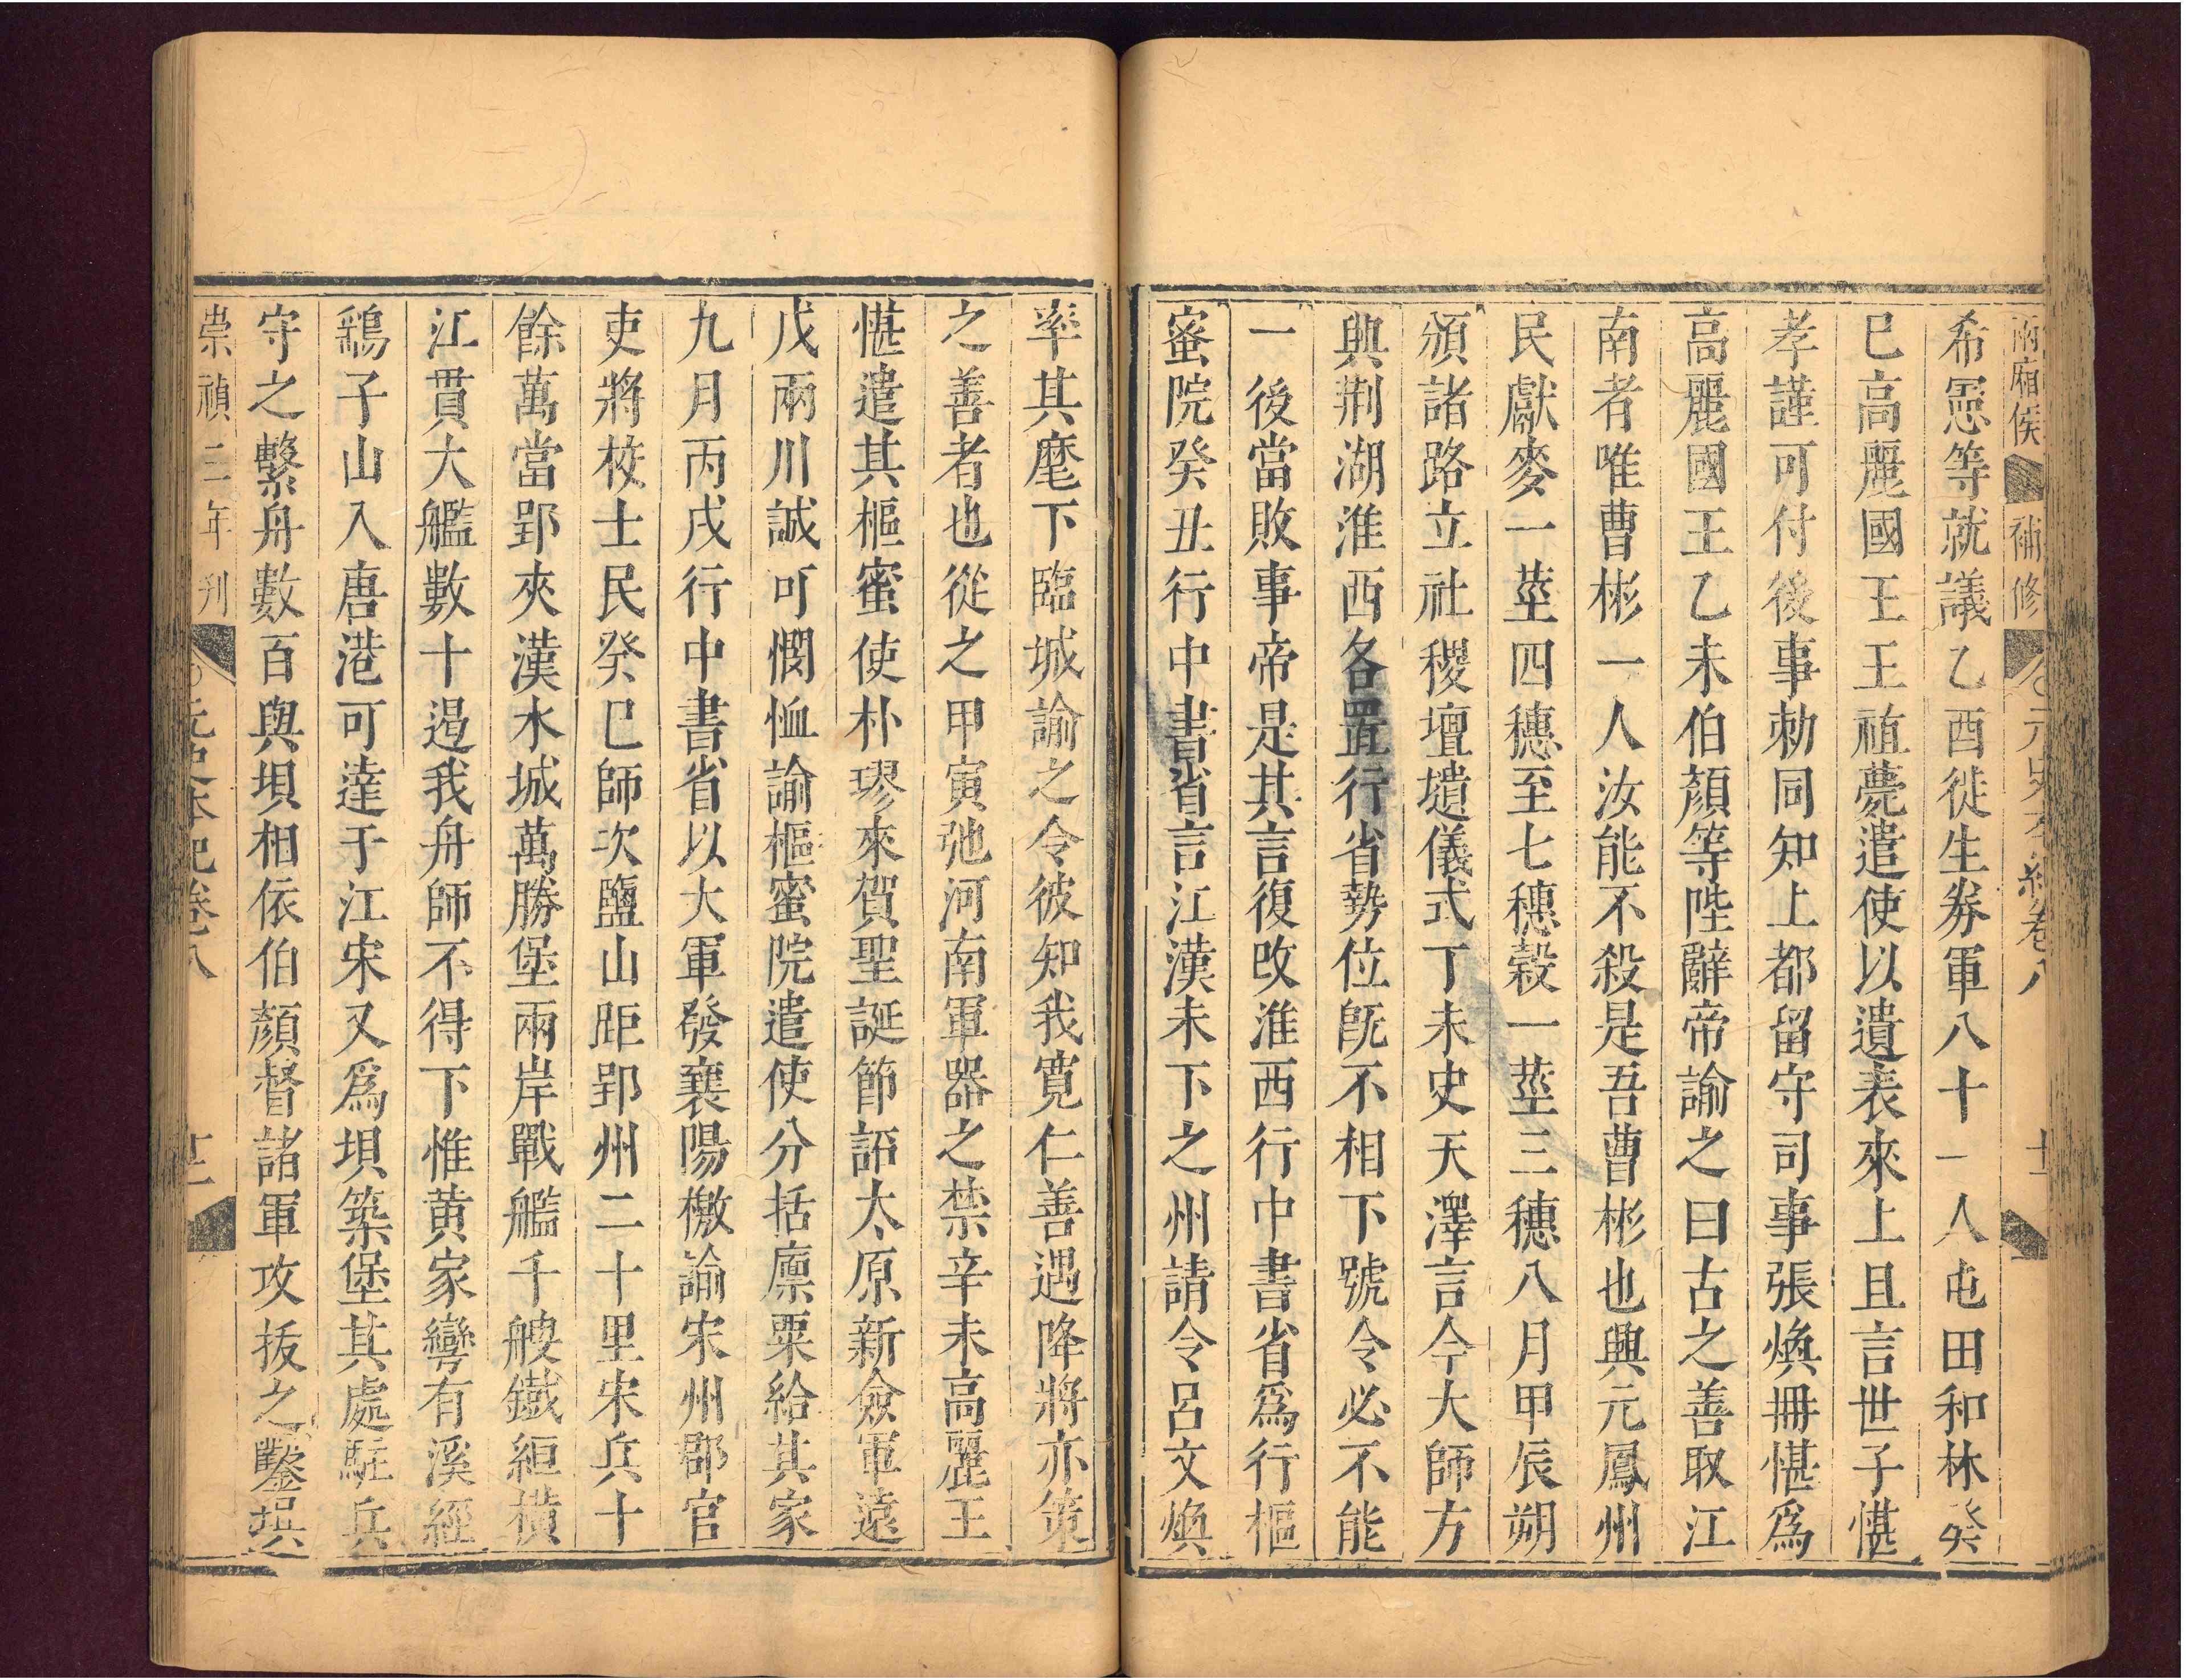 兩廂侯 補修 元史本紀卷八 十一
希愿等就議乙酉徙生券軍八十一人屯田和林癸
巳高麗國王王禃薨遣使以遺表來上且言世子愖
孝謹可付後事勅同知上都留守司事張煥冊愖爲
高麗國王乙未伯顏等陛辭帝諭之曰古之善取江
南者唯曹彬一人汝能不殺是吾曹彬也興元鳳州
民獻麥一莖四穗至七穗穀一莖三穗八月甲辰朔
頒諸路立社稷壇壝儀式丁未史天澤言今大師方
興荆湖淮西各置行省勢位旣不相下號令必不能
一後當敗事帝是其言復改淮西行中書省爲行樞
蜜院癸丑行中書省言江漢未下之州請令呂文煥
率其麾下臨城諭之令彼知我寬仁善遇降將亦策
之善者也從之甲寅弛河南軍器之禁辛未高麗王
愖遣其樞蜜使朴璆來賀聖誕節詔太原新僉軍遠
戍兩川誠可憫恤諭樞蜜院遣使分括廪粟給其家
九月丙戌行中書省以大軍發襄陽檄諭宋州郡官
吏將校士民癸巳師次鹽山距郢州二十里宋兵十
餘萬當郢夾漢水城萬勝堡兩岸戰艦千艘鐵絙橫
江貫大艦數十遏我舟師不得下惟黄家灣有溪經
鷂子山入唐港可達于江宋又爲垻築堡其處駐兵
守之繫舟數百與垻相依伯顏督諸軍攻拔之鑿垻
崇禎三年刋 元史本紀卷八 十二